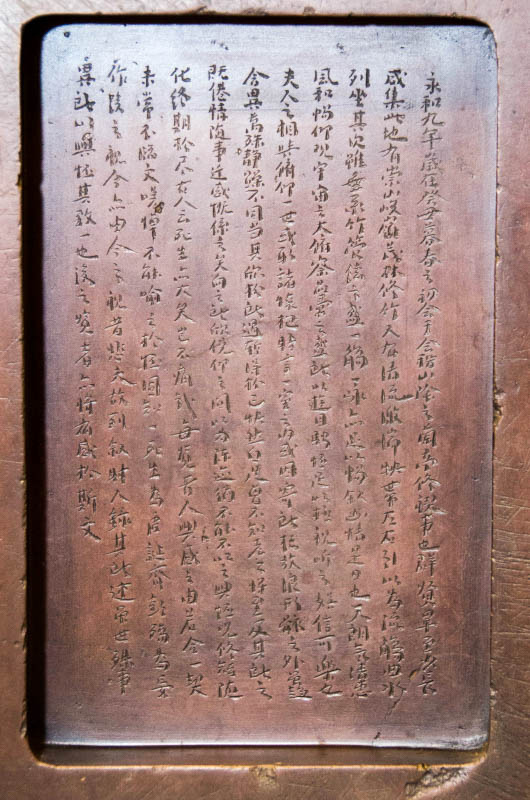 永和九年歲在癸丑暮春之初會于會稽山陰之蘭亭修禊事也群賢畢至少長
咸集此地有崇山峻嶺茂林修竹又有清流激湍映帶左右引以為流觴曲水
列坐其次雖無絲竹管弦之盛一觴一詠亦足以暢敘幽情是日也天朗氣清惠
風和暢仰觀宇宙之大俯察品類之盛所以遊目騁懷足以極視聽之娛信可樂也
夫人之相與俯仰一世或取諸懷抱晤言一室之內或因寄所託放浪形骸之外雖趣
舍萬殊靜躁不同當其欣於所遇暫得於己快然自足曾不知老之將至及其所之
既倦情隨事遷感慨係之矣向之所欣俛仰之間以為陳迹猶不能不以之興懷況修短隨
化終期於盡古人云死生亦大矣豈不痛哉每覽昔人興感之由若合一契
未嘗不臨文嗟悼不能喻之於懷固知一死生為虛誕齊彭殤為妄
作後之視今亦由今之視昔悲夫故列敘時人錄其所述雖世殊事
異所以興懷其致一也後之覽者亦將有感於斯文